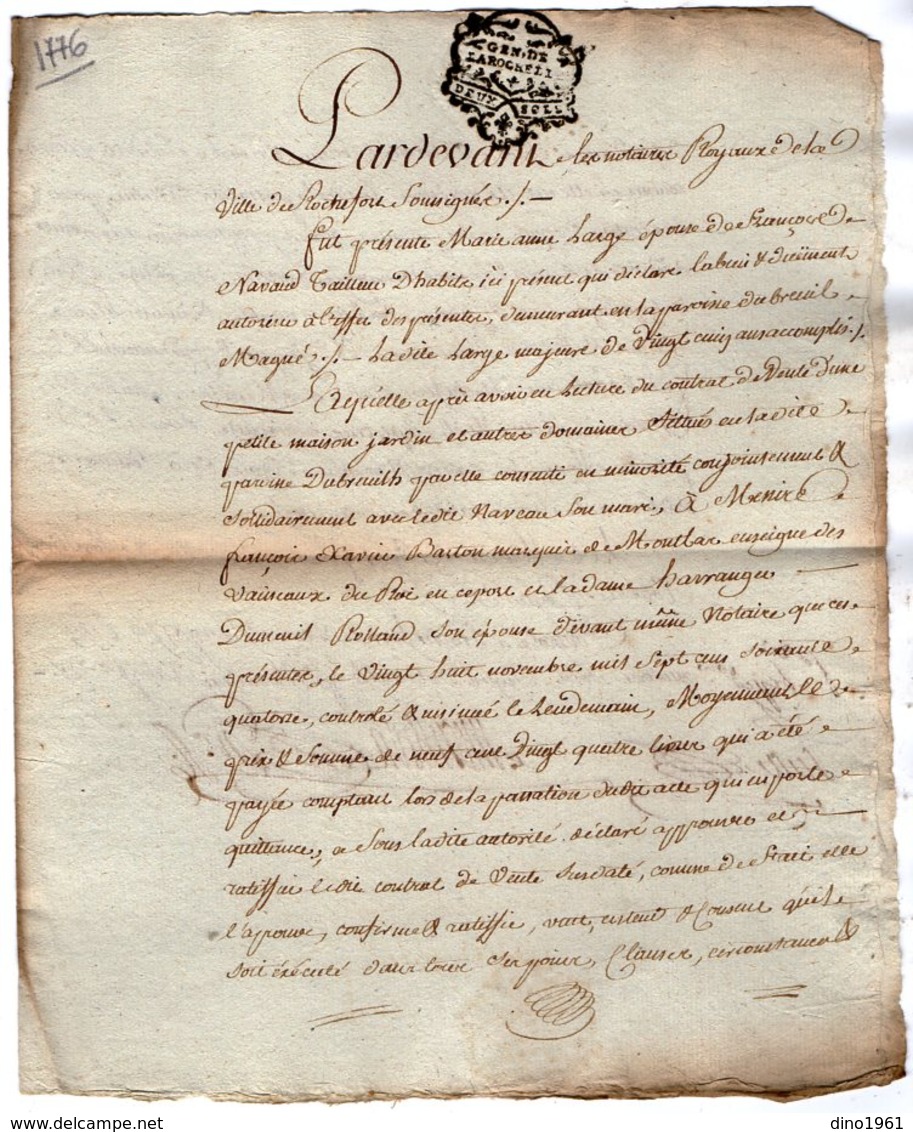 1776
GEN. DE
LAROCHELLE
DEUX SOLS
Pardevant les notaires Royaux de la
Ville de Rochefort Soussignés ./. —
fut présente Marie anne Large épouse de François
Navaud Tailleur Dhabits ici présent qui déclare l'a &
autorisée à l'effet des présentes, demeurant en la paroisse du breuil
Magné ./. Ladite Large majeure de Vingt cinq ans accomplis ./.
Laquelle après avoir eu Lecture du contrat de Vente d'une
petite maison jardin et autres domaines Situés en la dite
paroisse Dubreuilh par elle consenti en minorité conjointement &
Solidairement avec ledit Naveau Son mari, à Messire
françois Xavier Barton marquis de Montbas enseigne des
Vaisseaux du Roi en ce port et la dame harranger
Dumeuil Rolland Son épouse devant même Notaire que ces
présentes, le Vingt huit novembre mil Sept cens Soixante
quatorze, controlé & insinué le Lendemain, Moyennant le
prix & Somme de neuf cens Vingt quatre livres qui a été
payée comptant lors de la passation dudit acte qui en porte
quittance, a Sous ladite autorité déclaré approuver et
ratiffier ledit contrat de Vente Susdaté, comme de fait elle
l'aprouve, confirme & ratiffie, veut, entend & Consent qu'il
soit éxécuté dans tous Ses points, Clauses, circonstances &
dino1961